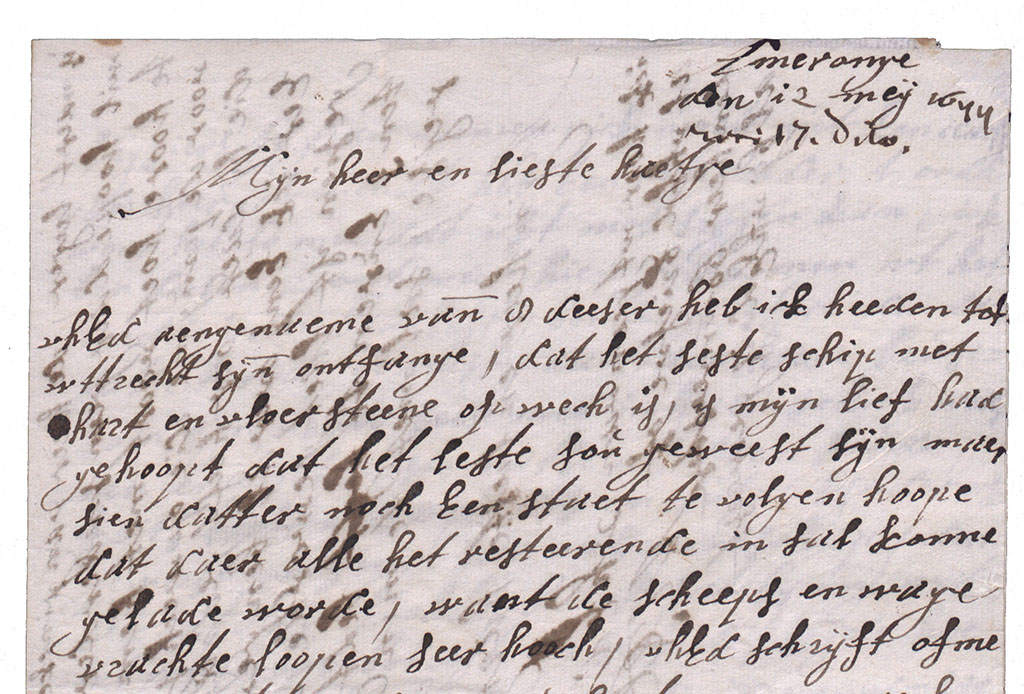 Zmeronge
den 12 meÿ 1677
17. dito.
Mÿn heer en lieste hartye
uhEd aengenaeme van 8 deeser heb ick heeden tot
uttrecht sÿn ontfange, dat het seste schip met
hart en vloersteene op wech is, is mÿn lief had
gehoopt dat het leste soù geweest sÿn maer
sien datter noch Een staet te volgen hoope
dat daer alle het resteerende in sal konne
gelade worde, want de scheeps en wage
vrachte loopen seer hooch, uhEd schrÿft ofme